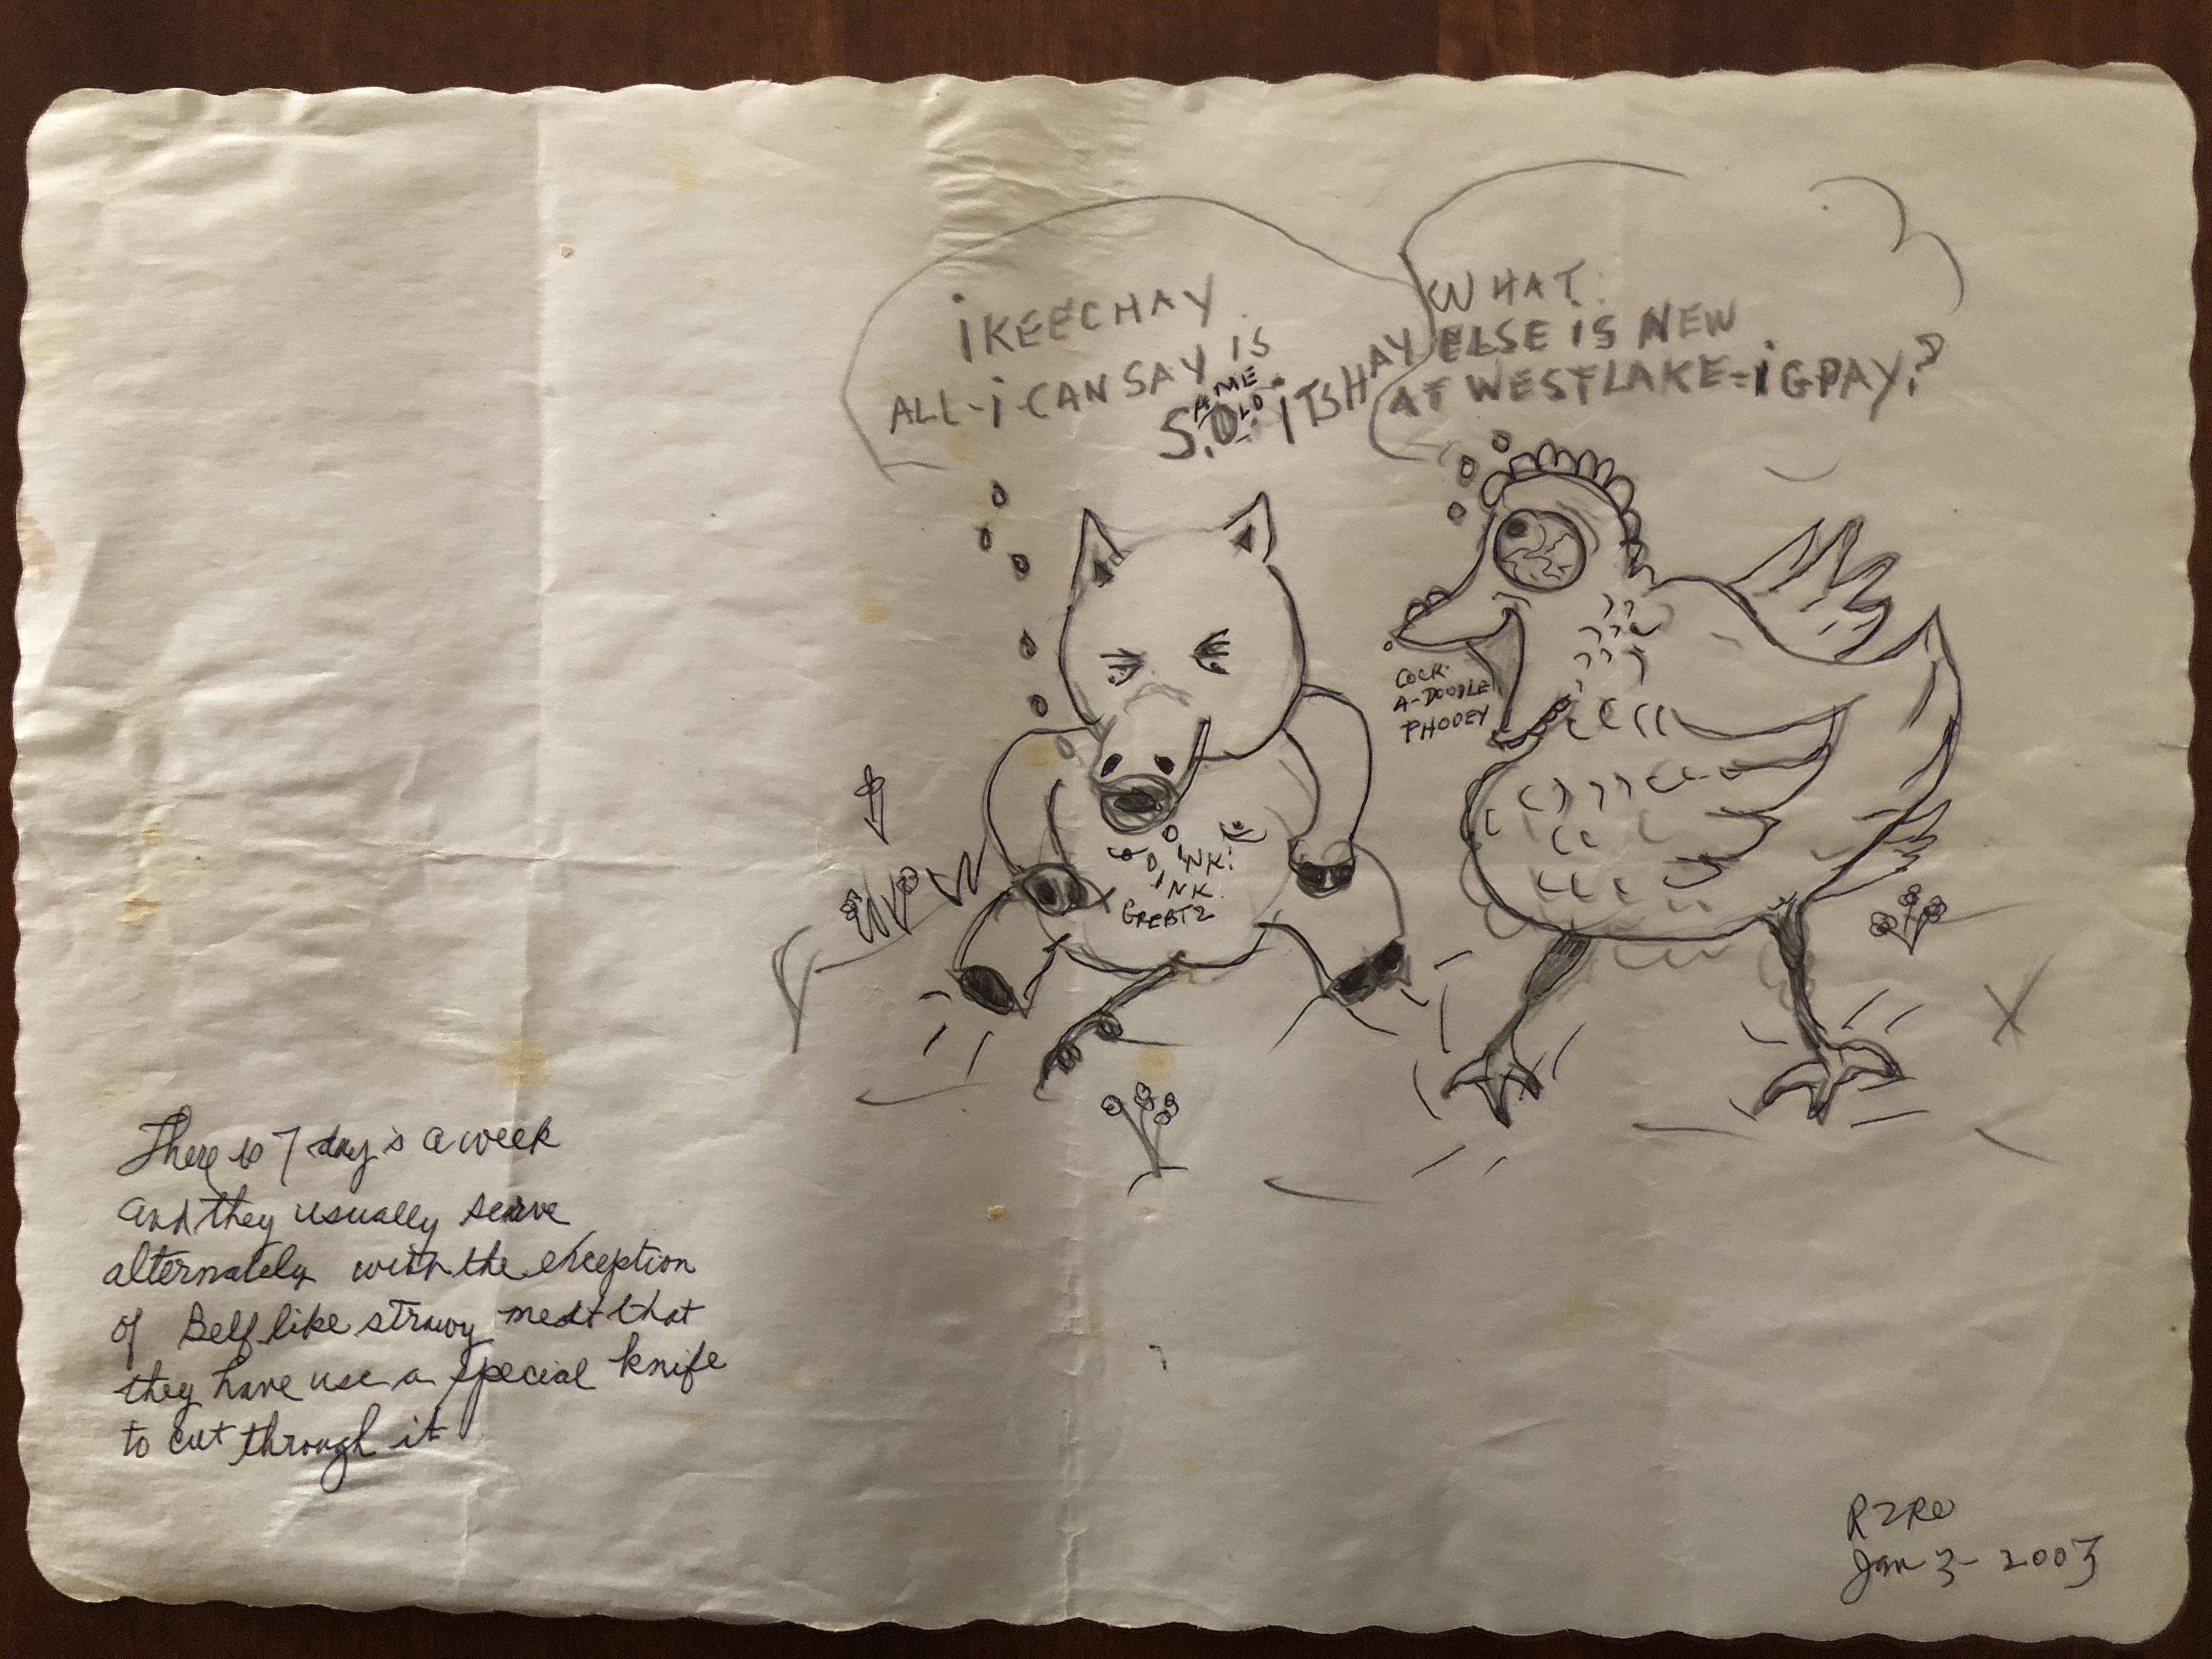 iKEECHAY
ALL-i-CAN SAY IS
S.O. ITSHAY
AME
OLD
WHAT
ELSE IS NEW
AT WESTLAKE-iGPAY?
COCK
A-DOODLE
PHOOEY
OINK!
OINK!
GREBTZ
There is 7 day's a week
and they usually serve
alternately with the exception
of Beef like strawy meat that
they have use a special knife
to cut through it
Jan 3-2003